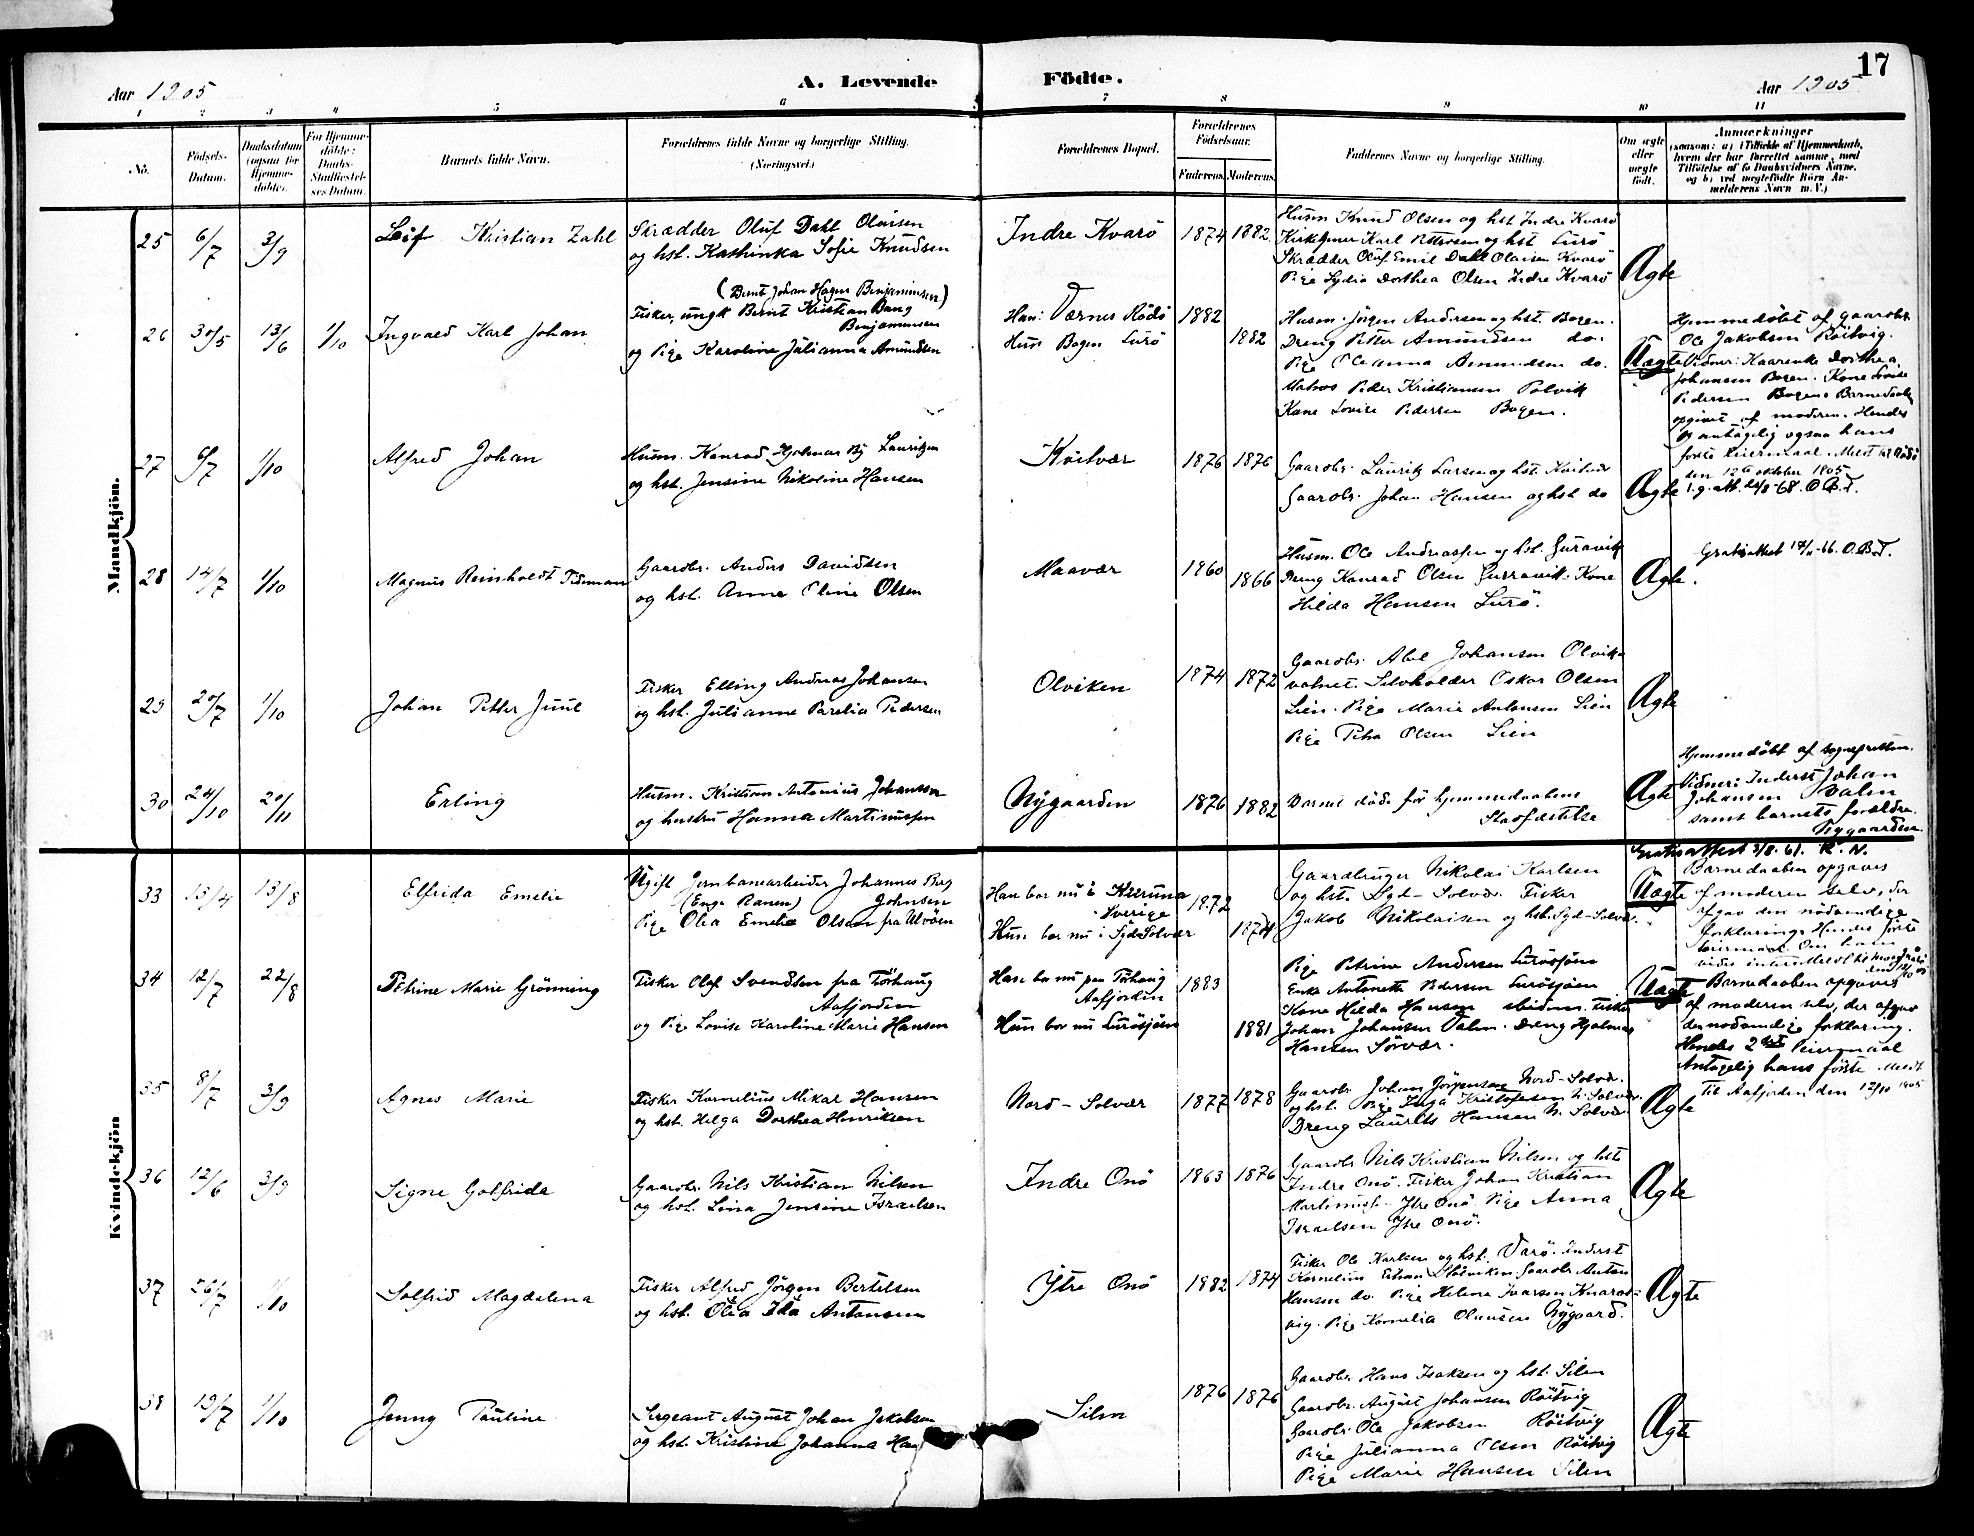 17
Aar 1905
A. Levende Födte.
Aar 1905
1 2 3 4 5 6 7 8 9 10 11
No.
Födsels-Datum.
Daabsdatum (ogsaa for Hjemmedöbte).
For Hjemmedöbte: Daabs-Stadfæstelses Datum.
Barnets fulde Navn.
Forældrenes fulde Navne og borgerlige Stilling. (Næringsvei.)
Forældrenes Bopæl.
Forældrenes Födselsaar.
Faderens. Moderens.
Faddernes Navne og borgerlige Stilling.
Om ægte eller uægte födt.
Anmærkninger
(saasom: a) i Tilfælde af Hjemmedaab, hvem der har forrettet samme, med Tilföielse af to Daabsvidners Navne, og b) ved uægtefödte Börn Anmelderens Navn m. V.)
Mandkjön.
25 6/7 3/9
Leif Kristian Zahl
Skrædder Oluf Dahl Olaisen
og hst. Kathinka Sofie Knudsen
Indre Kvarö
1874 1882
Husm Knud Olsen og hst Indre Kvarö
Kirketjener Karl Pettersen og hst Lurö
Skrædder Oluf Emil Dahl Olaisen Kvarö
Pige Lydia Dorthea Olsen Indre Kvarö
Ægte
26 30/5 13/6 1/10
Ingvald Karl Johan
(Bernt Johan Hagen Benjaminsen)
Fisker, ungk Bernt Kristian Bang
Benjaminsen
og Pige Karoline Julianna Amundsen
Han: Værnes Rödö
Hun Bogen Lurö
1882
1882
Husm. Jörgen Andersen og hst. Bogen.
Dreng Petter Amundsen do.
Pige Oleanna Amundsen do.
Matros Peder Kristiansen Polvik
Kone Lovise Pedersen Bogen.
Uægte
Hjemmedöbt af gaarobr
Ole Jakobsen Röitvig.
Vidner: Kaarenke Dorthea
Johansen Bogen. Kone Lovise
Pedersen Bogen. Barnedaab
opgivet af moderen. Hendes
og antagelig ogsaa hans
förste leiermaal. Meldt til Rödö
den 12te oktober 1905
27 6/7 1/10
Alfred Johan
Husm. Konrad Hjalmar By Lauritzen
og hst. Jensine Nikoline Hansen
Kvitvær
1876 1876
Gaarobr. Lauritz Larsen og hst. Kvitvær
Gaarobr. Johan Hansen og hst do
Ægte
28 14/7 1/10
Magnus Reinholdt Tidman
Gaarobr. Anders Davidsen
og hst. Anne Eline Olsen
Maavær
1860
1866
Husm. Ole Andreassen og hst. Luravik
Dreng Konrad Olsen Luravik. Kone
Hilda Hansen Lurö.
Ægte.
29 20/7 1/10
Johan Petter Juul
Fisker Elling Andreas Johansen
og hst. Julianne Parelia Pedersen
Olviken
1874 1872
Gaarobr. Abel Johansen Olvik-
vatnet. Selvholder Oskar Olsen
Lien. Pige Marie Antonsen Lien
Pige Petra Olsen Lien
Ægte
30 24/10 20/11
Erling
Husm. Kristian Antonius Johansen
og hustru Hanna Martinussen
Nygaarden
1876 1882
Barnet döde för hjemmedaabens
Stadfæstelse
Ægte
Hjemmedöbt af sognepresten.
Vidner: Inderst Johan
Johansen Dalen
samt barnets forældre
Nygaarden
Kvindekjön
33 13/4 13/8
Elfrida Emelie
Ugift Jernbanearbeider Johannes Berg
(Enge Ranen) Johnsen
Pige Olea Emelia Olsen fra Alvöen
Han bor nu i Kiruna
Sverige
Hun bor nu i Syd-Solvær
1872
1874
Gaardbruger Nikolai Karlsen
og hst. Syd-Solvær. Fisker
Jakob Nikolaisen og hst. Syd-Solvær.
Uægte
Barnedaaben opgaves
af moderen selv, der
afgav den nödvendige
forklaring. Hendes förste
leiermaal. Om ham
vides intet.
34 12/7 22/8
Petrine Marie Grönning
Fisker Olaf Svendsen fra Törhaug
Aafjorden
og Pige Lovise Karoline Marie Hansen
Han bor nu paa Törhaug
Aafjorden
Hun bor nu Lurösjöen
1883
1881
Pige Petrine Andersen Lurösjöen
Enke Antonette Pedersen Lurösjöen
Kone Hilda Hansen ibidem. Fisker
Johan Johansen Dalen. Dreng Hjalmar
Hansen Sörvær.
Uægte
Barnedaaben opgaves
af moderen selv, der afgav
den nödvendige forklaring.
Hendes 2det leiermaal
Antagelig hans förste. Meldt
til Aafjorden den 12/10 1905
35 8/7 3/9
Agnes Marie
Fisker Kornelius Mikal Hansen
og hst. Helga Dorthea Henriksen
Nord-Solvær
1877 1878
Gaarobr. Johan Jörgensen Nord-Solvær
og hst. Pige Inga Kristoffersen N. Solvær.
Dreng Laurits Hansen N. Solvær
Ægte
36 12/6 3/9
Signe Golfrida
Gaarobr. Nils Kristian Nilsen
og hst. Lina Jensine Israelsen
Indre Onö
1863 1876
Gaarobr Nils Kristian Nilsen og hst
Indre Onö. Fisker Johan Kristian
Martinuss. Ytre Onö. Pige Anna
Israelsen Ytre Onö.
Ægte
37 26/7 1/10
Solfrid Magdalena
Fisker Alfred Jörgen Bertelsen
og hst. Olea Ida Antonsen
Ytre Onö
1882 1874
Fisker Ole Karlsen og hst. Varö. Inderst
Kornelius Slotviken. Gaarobr Anton
Hansen do. Pige Helene Ivarsen Kvaros-
vig. Pige Kornelia Olaussen Nygaard.
Ægte
38 19/7 1/10
Jenny Pauline
Sergeant August Johan Jakobsen
og hst. Kristine Johanna Han
Silen
1876 1876
Gaarobr. Hans Isaksen og hst. Silen
Gaarobr. August Johansen Röitvig
Gaarobr. Ole Jakobsen Röitvig
Pige Julianna Olsen Röitvig
Pige Marie Hansen Silen
Ægte